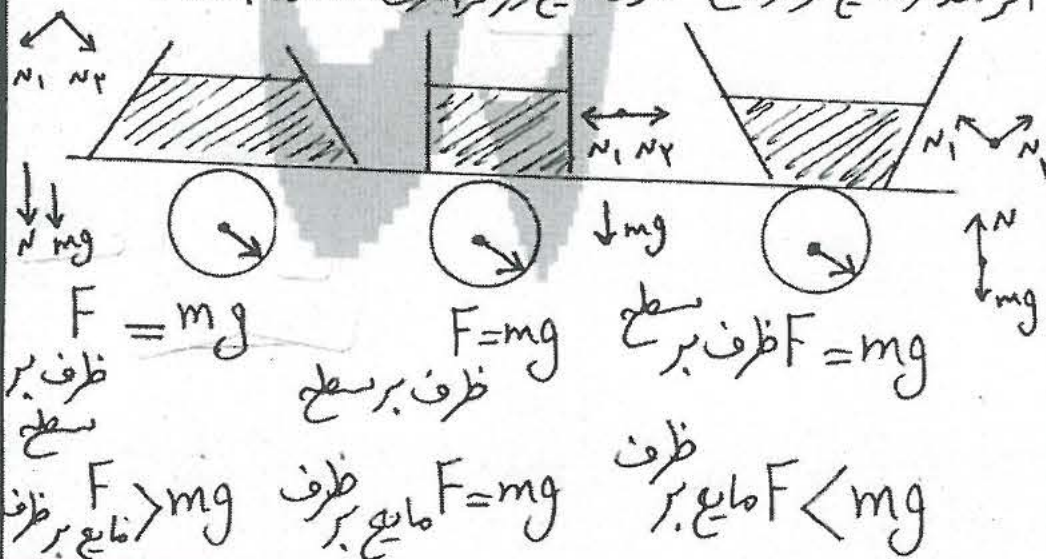 N₁ N₂
N₁ N₂
N₁ N₂
N mg
mg
N
mg
F = mg
ظرف بر سطح
F = mg
ظرف بر سطح
F = mg
ظرف بر سطح
F > mg
مایع بر ظرف
F = mg
مایع بر ظرف
F < mg
مایع بر ظرف